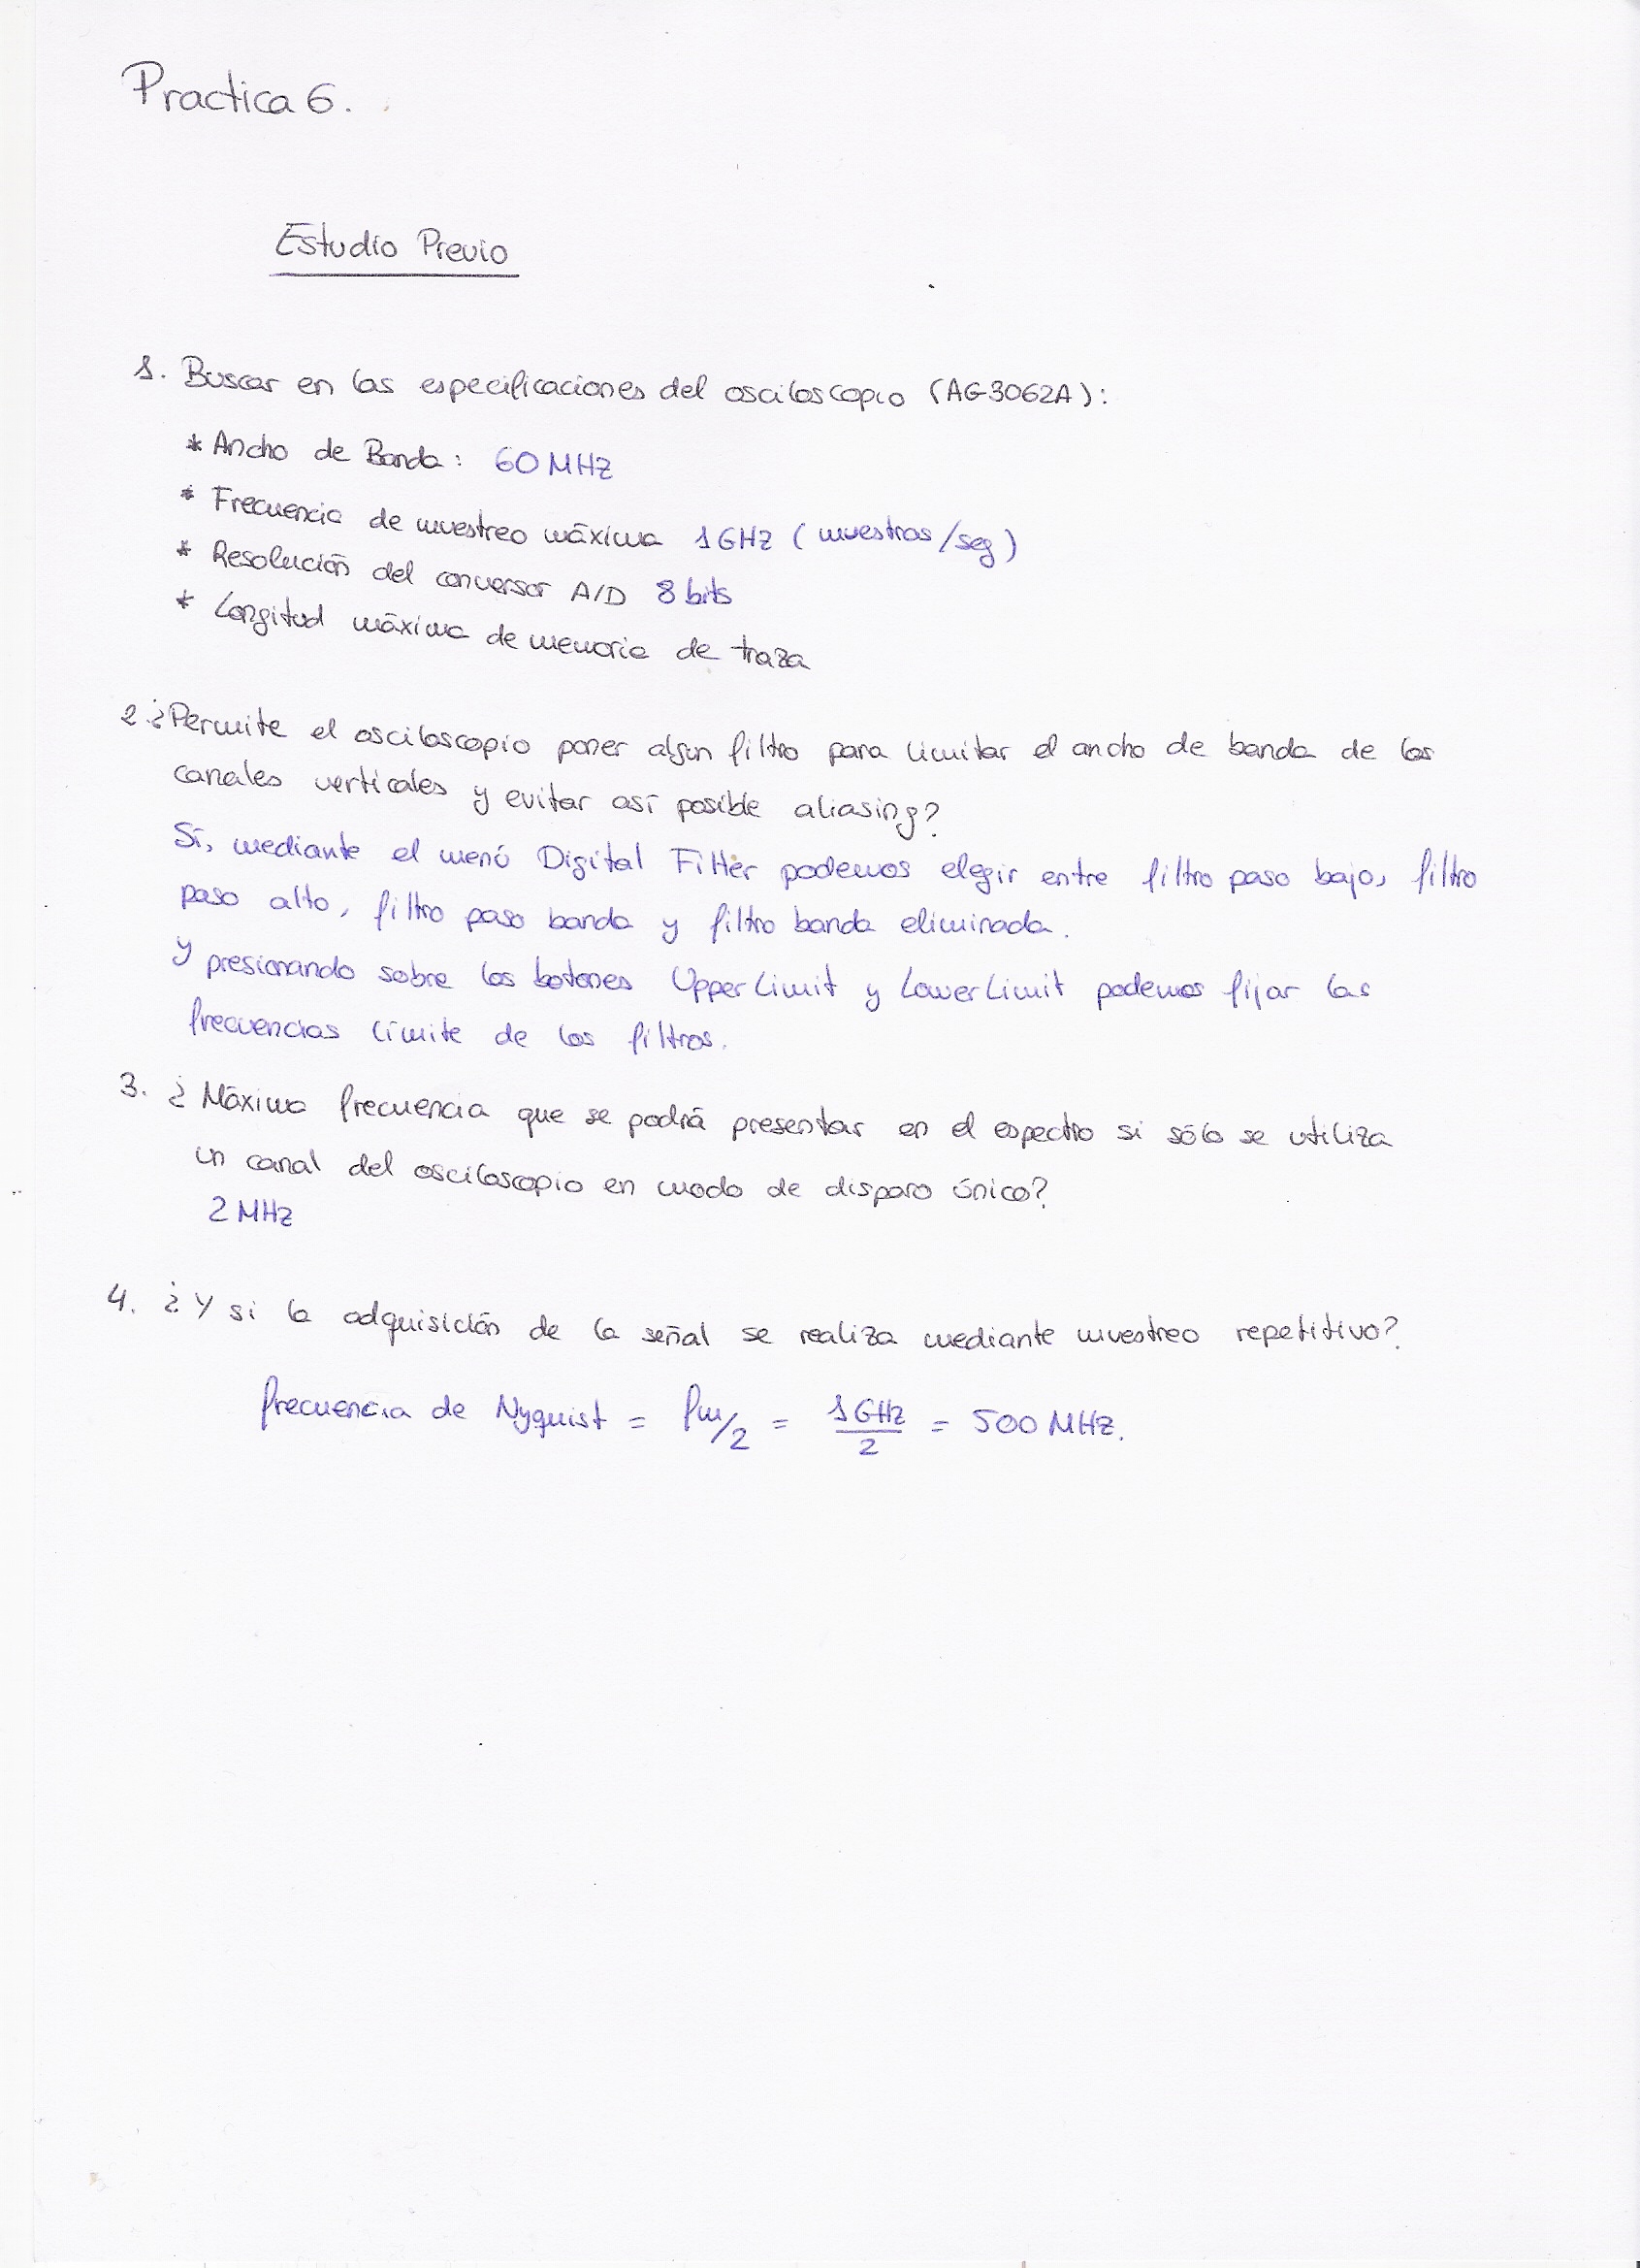 Practica 6.
Estudio Previo
1. Buscar en las especificaciones del osciloscopio (AG3062A):
* Ancho de Banda: 60 MHz
* Frecuencia de muestreo máxima 1GHz (muestras/seg)
* Resolución del conversor A/D 8 bits
* Longitud máxima de memoria de traza
2. ¿Permite el osciloscopio poner algun filtro para limitar el ancho de banda de los
canales verticales y evitar así posible aliasing?
Sí, mediante el menú Digital Filter podemos elegir entre filtro paso bajo, filtro
paso alto, filtro paso banda y filtro banda eliminada.
y presionando sobre los botones Upper Limit y Lower Limit podemos fijar las
frecuencias límite de los filtros.
3. ¿Máxima frecuencia que se podrá presentar en el espectro si sólo se utiliza
un canal del osciloscopio en modo de disparo único?
2 MHz
4. ¿Y si la adquisición de la señal se realiza mediante muestreo repetitivo?
frecuencia de Nyquist = fm/2 = 1GHz/2 = 500 MHz.